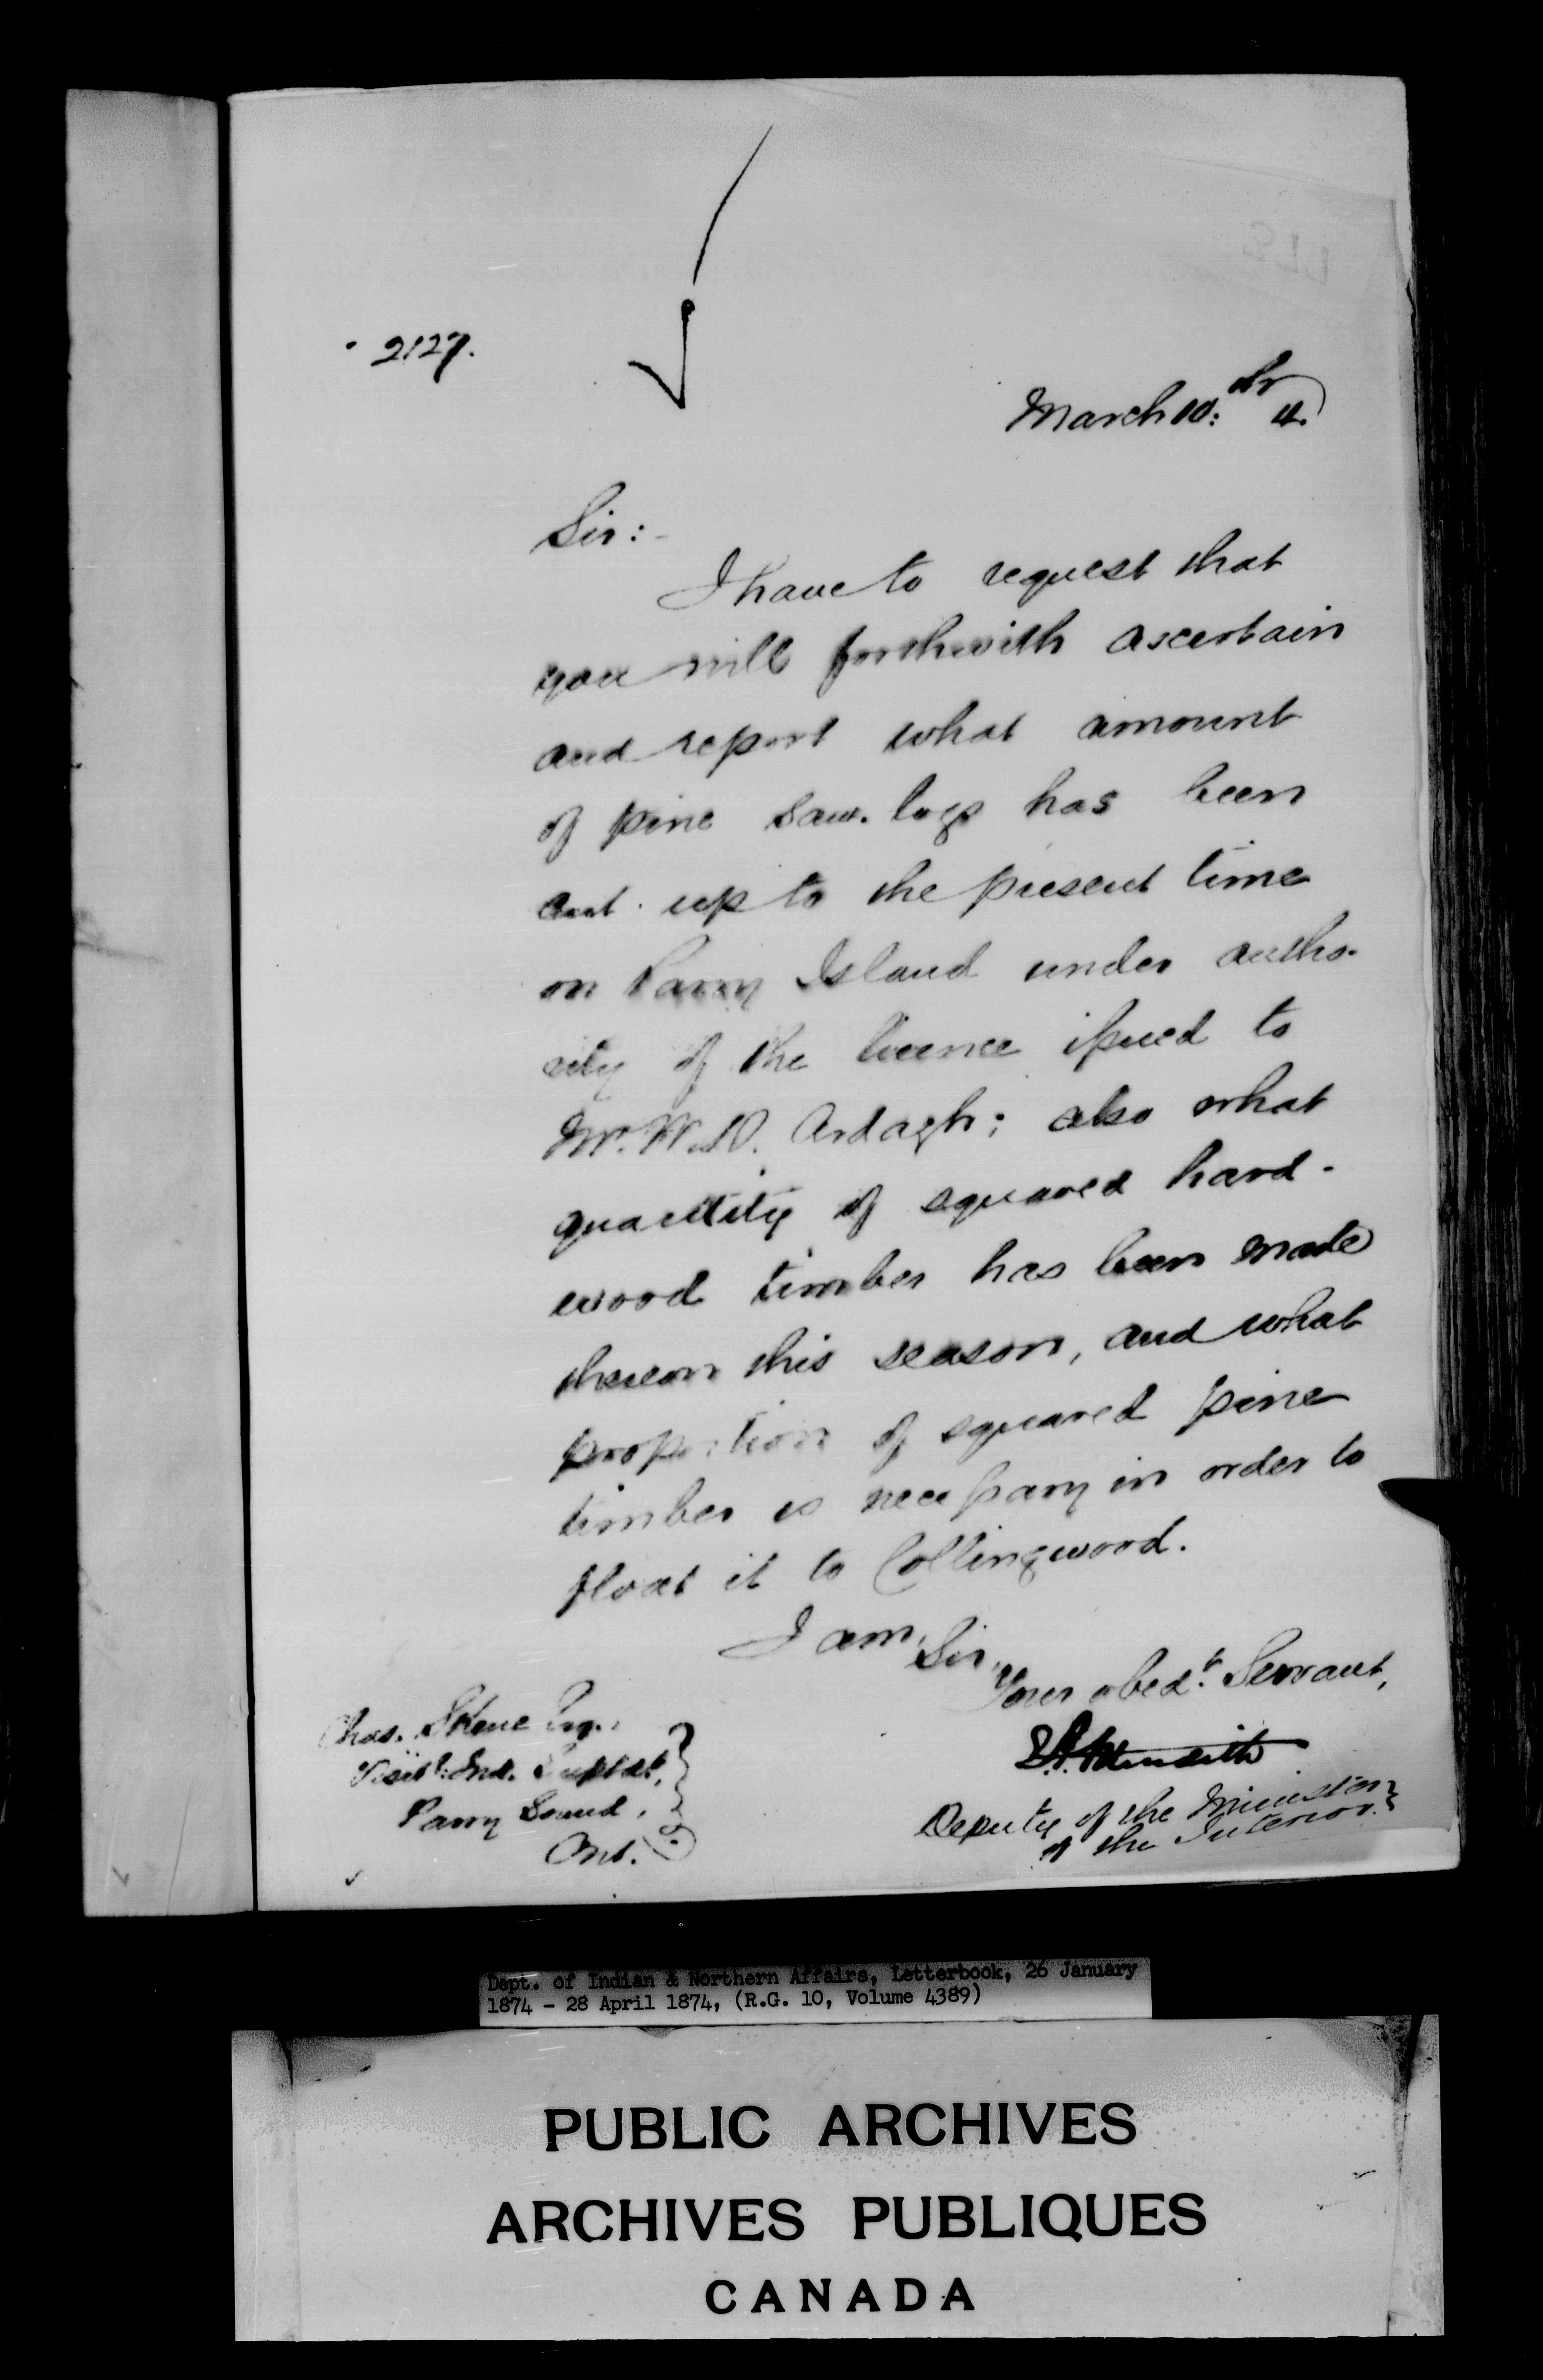 2127.
March 10:th 4.
Sir:-
I have to request that
you will forthwith ascertain
and report what amount
of pine saw-logs has been
cut up to the present time
on Parry Island under autho-
rity of the licence issued to
Mr. W. D. Ardagh; also what
quantity of squared hard-
wood timber has been made
thereon this season, and what
proportion of squared pine
timber is necessary in order to
float it to Collingwood.
I am, Sir,
Your obedt. Servant,
E. A. Meredith
Deputy of the Minister
of the Interior.
Chas. Skene Esq.,
Visitg: Ind. Suptdt,
Parry Sound,
Ont.
Dept. of Indian & Northern Affairs, Letterbook, 26 January
1874 - 28 April 1874, (R.G. 10, Volume 4389)
PUBLIC ARCHIVES
ARCHIVES PUBLIQUES
CANADA